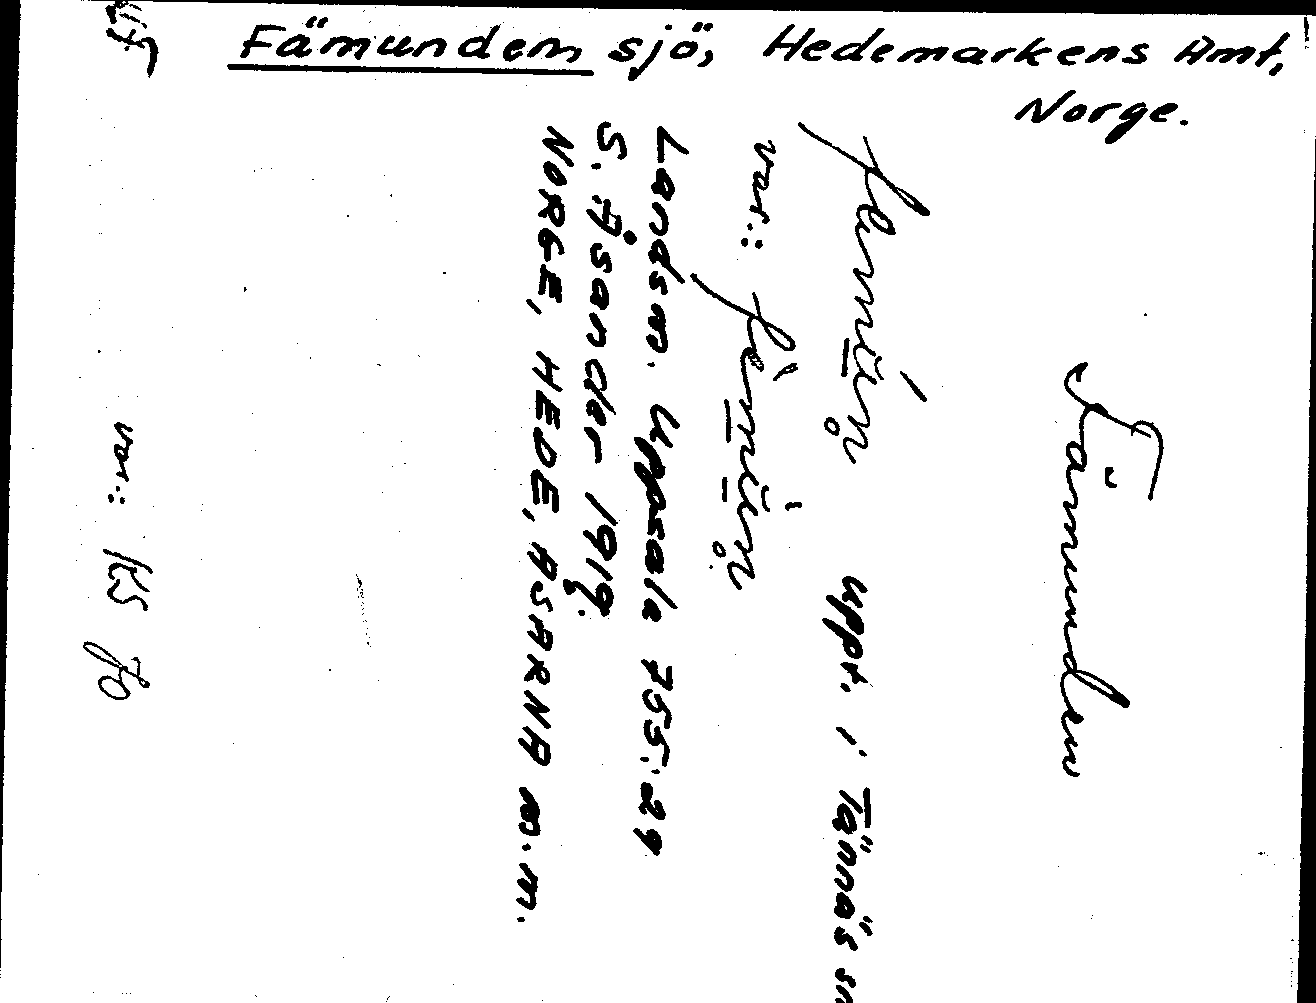 Fämunden sjö, Hedemarkens Amt,
Norge.
Fämunden
uppt. i Tännäs sn
var.:
Landsm. Uppsala 755:29
S. Åsander 1919.
NORGE, HEDE, ASARNA m.m.
var.: KS 70